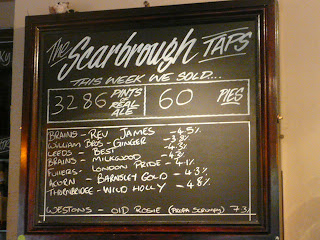 The Scarbrough TAPS
THIS WEEK WE SOLD...
3286 PINTS of REAL ALE 60 PIES
BRAINS - REV JAMES - 4.5%
WILLIAM BROS - GINGER - 3.8%
LEEDS - BEST - 4.3%
BRAINS - MILKWOOD - 4.3%
FULLERS - LONDON PRIDE - 4.1%
ACORN - BARNSLEY GOLD - 4.3%
THORNBRIDGE - WILD HOLLY - 4.8%
WESTONS - OLD ROSIE (PROPA SCRUMPY) 7.3%